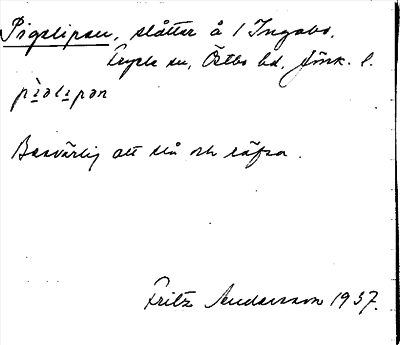 Pigslipan, slåtter å 1 Ingabo.
Fryele sn, Östbo hd, Jönk. l.
Besvärlig att slå och räfsa.
Fritz Andersson 1937.